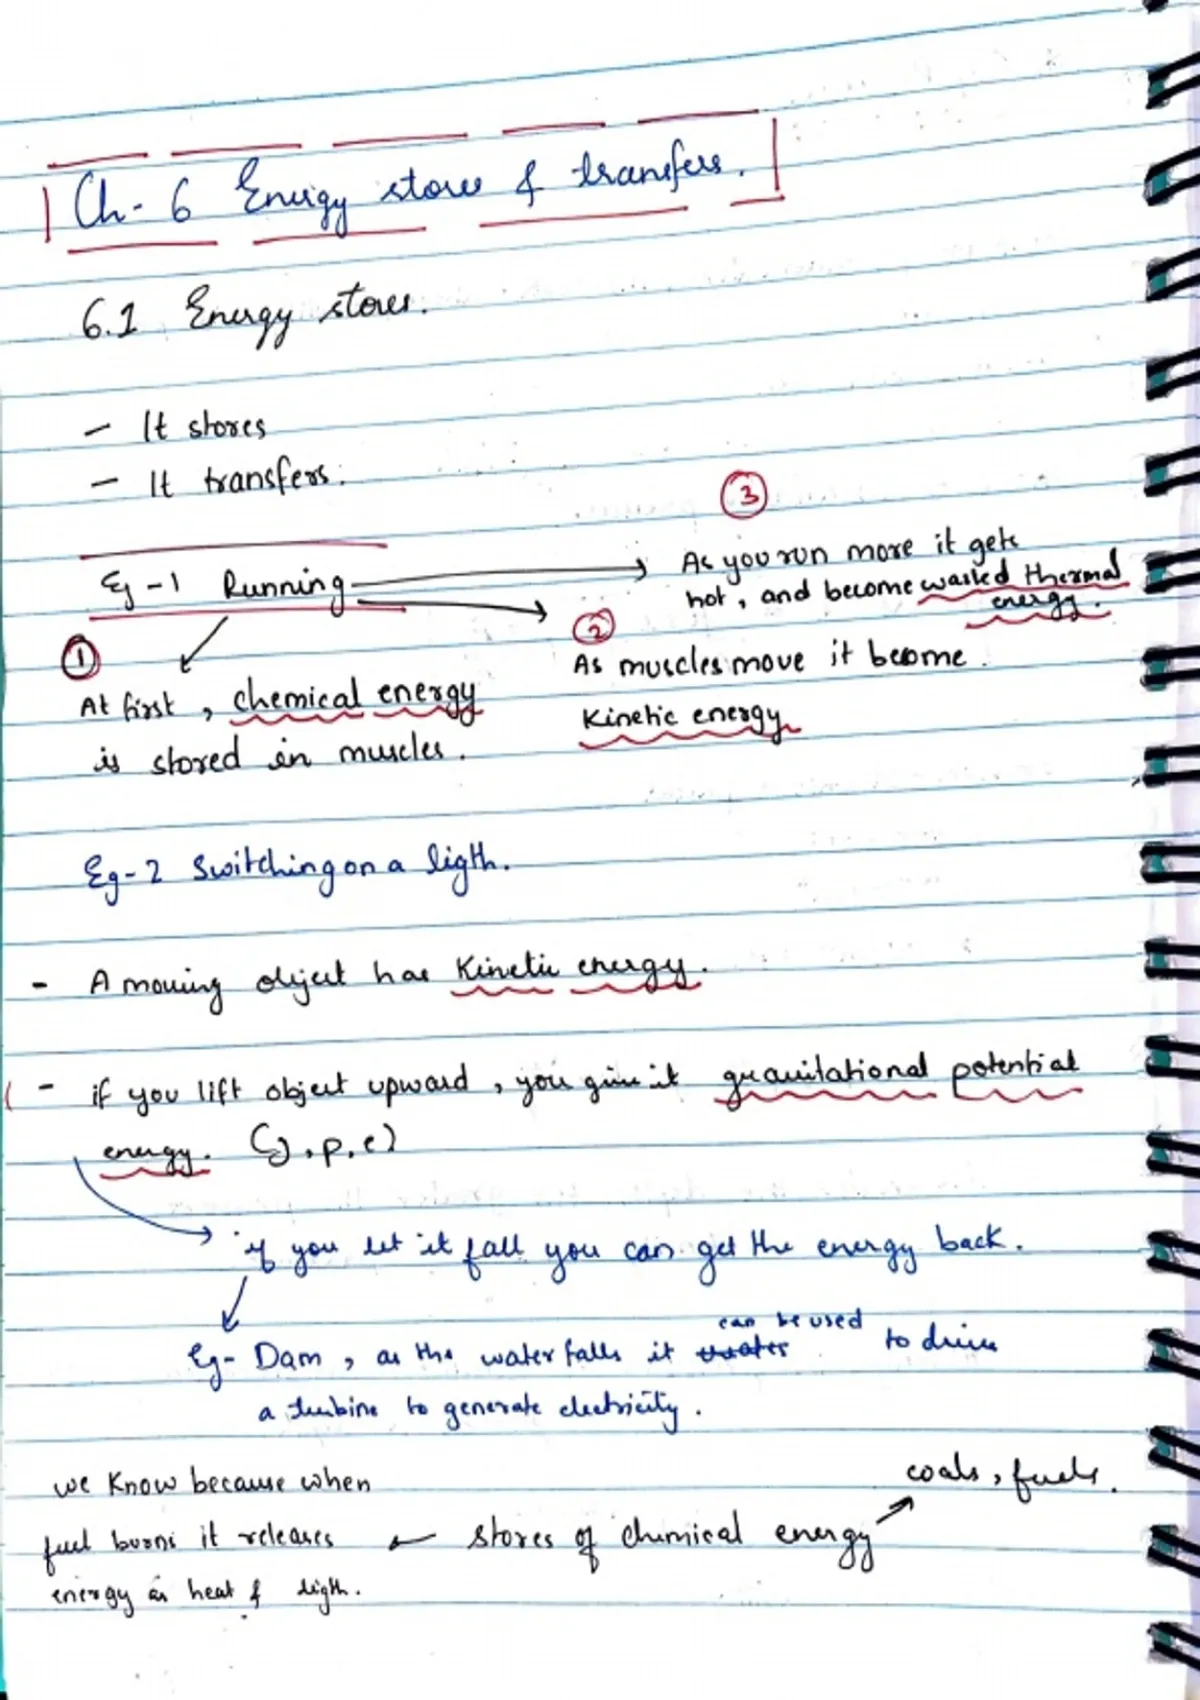 Ch-6 Energy stores & transfers.
6.1 Energy stores.
- It stores
- It transfers.
Eg-1 Running
①
At first, chemical energy
is stored in muscles.
②
As muscles move it become
Kinetic energy
③
As you run more it gets
hot, and become wasted thermal
energy.
Eg-2 Switching on a ligth.
- A moving object has Kinetic energy.
- if you lift object upward, you give it gravitational potential
energy. (g.p.e)
if you let it fall you can get the energy back.
can be used
Eg- Dam, as the water falls it to drive
a turbine to generate electricity.
stores of chemical energy
coals, fuels.
we know because when
fuel burns it releases
energy as heat & ligth.